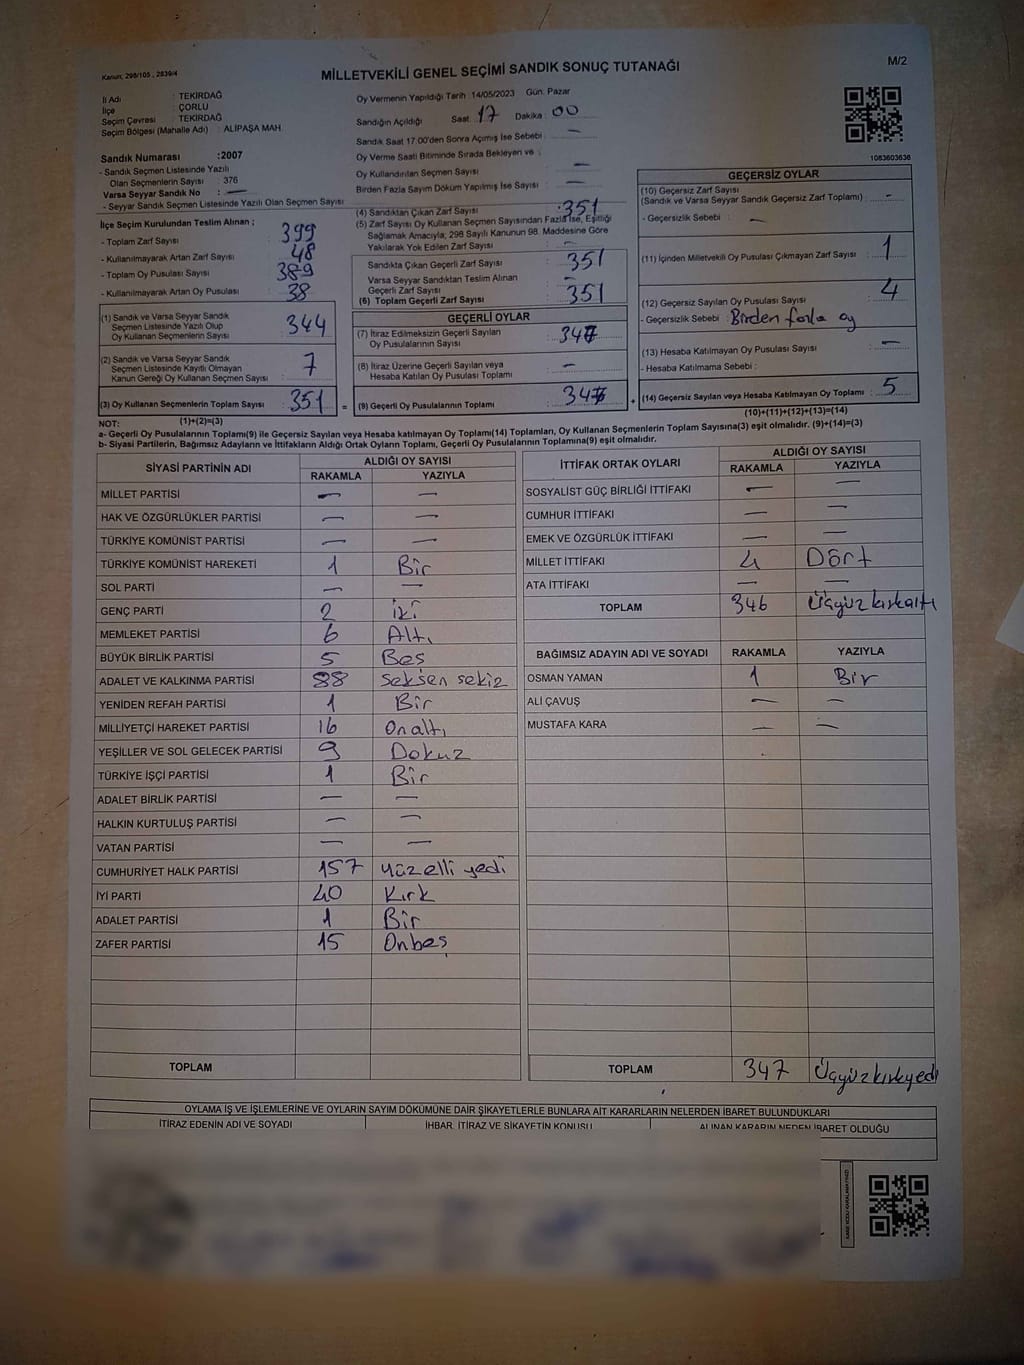 Kanun; 298/105 , 2839/4
MİLLETVEKİLİ GENEL SEÇİMİ SANDIK SONUÇ TUTANAĞI
M/2
İl Adı : TEKİRDAĞ
İlçe : ÇORLU
Seçim Çevresi : TEKİRDAĞ
Seçim Bölgesi (Mahalle Adı) : ALİPAŞA MAH.
Oy Vermenin Yapıldığı Tarih :14/05/2023 Gün: Pazar
Sandığın Açıldığı Saat : 17 Dakika : 00
Sandık Saat 17.00'den Sonra Açılmış İse Sebebi : —
Oy Verme Saati Bitiminde Sırada Bekleyen ve ;
Oy Kullandırılan Seçmen Sayısı : —
Birden Fazla Sayım Döküm Yapılmış İse Sayısı : —
1083603636
Sandık Numarası :2007
- Sandık Seçmen Listesinde Yazılı
Olan Seçmenlerin Sayısı : 376
Varsa Seyyar Sandık No : —
- Seyyar Sandık Seçmen Listesinde Yazılı Olan Seçmen Sayısı
İlçe Seçim Kurulundan Teslim Alınan ;
- Toplam Zarf Sayısı : 399
- Kullanılmayarak Artan Zarf Sayısı : 48
- Toplam Oy Pusulası Sayısı : 389
- Kullanılmayarak Artan Oy Pusulası : 38
(1) Sandık ve Varsa Seyyar Sandık
Seçmen Listesinde Yazılı Olup
Oy Kullanan Seçmenlerin Sayısı : 344
(2) Sandık ve Varsa Seyyar Sandık
Seçmen Listesinde Kayıtlı Olmayan
Kanun Gereği Oy Kullanan Seçmen Sayısı : 7
(3) Oy Kullanan Seçmenlerin Toplam Sayısı : 351 =
(4) Sandıktan Çıkan Zarf Sayısı : 351
(5) Zarf Sayısı Oy Kullanan Seçmen Sayısından Fazla İse, Eşitliği
Sağlamak Amacıyla; 298 Sayılı Kanunun 98. Maddesine Göre
Yakılarak Yok Edilen Zarf Sayısı : —
Sandıkta Çıkan Geçerli Zarf Sayısı : 351
Varsa Seyyar Sandıktan Teslim Alınan
Geçerli Zarf Sayısı : —
(6) Toplam Geçerli Zarf Sayısı : 351
GEÇERLİ OYLAR
(7) İtiraz Edilmeksizin Geçerli Sayılan
Oy Pusulalarının Sayısı : 347
(8) İtiraz Üzerine Geçerli Sayılan veya
Hesaba Katılan Oy Pusulası Toplamı : —
(9) Geçerli Oy Pusulalarının Toplamı : 347 +
GEÇERSİZ OYLAR
(10) Geçersiz Zarf Sayısı
(Sandık ve Varsa Seyyar Sandık Geçersiz Zarf Toplamı) : —
- Geçersizlik Sebebi : —
(11) İçinden Milletvekili Oy Pusulası Çıkmayan Zarf Sayısı : 1
(12) Geçersiz Sayılan Oy Pusulası Sayısı : 4
- Geçersizlik Sebebi : Birden fazla oy
(13) Hesaba Katılmayan Oy Pusulası Sayısı : —
- Hesaba Katılmama Sebebi :
(14) Geçersiz Sayılan veya Hesaba Katılmayan Oy Toplamı : 5
NOT: (1)+(2)=(3)
(10)+(11)+(12)+(13)=(14)
a- Geçerli Oy Pusulalarının Toplamı(9) ile Geçersiz Sayılan veya Hesaba katılmayan Oy Toplamı(14) Toplamları, Oy Kullanan Seçmenlerin Toplam Sayısına(3) eşit olmalıdır. (9)+(14)=(3)
b- Siyasi Partilerin, Bağımsız Adayların ve İttifakların Aldığı Ortak Oyların Toplamı, Geçerli Oy Pusulalarının Toplamına(9) eşit olmalıdır.
SİYASİ PARTİNİN ADI ALDIĞI OY SAYISI
RAKAMLA YAZIYLA
MİLLET PARTİSİ — —
HAK VE ÖZGÜRLÜKLER PARTİSİ — —
TÜRKİYE KOMÜNİST PARTİSİ — —
TÜRKİYE KOMÜNİST HAREKETİ 1 Bir
SOL PARTİ — —
GENÇ PARTİ 2 iki
MEMLEKET PARTİSİ 6 Altı
BÜYÜK BİRLİK PARTİSİ 5 Beş
ADALET VE KALKINMA PARTİSİ 88 seksen sekiz
YENİDEN REFAH PARTİSİ 1 Bir
MİLLİYETÇİ HAREKET PARTİSİ 16 Onaltı
YEŞİLLER VE SOL GELECEK PARTİSİ 9 Dokuz
TÜRKİYE İŞÇİ PARTİSİ 1 Bir
ADALET BİRLİK PARTİSİ — —
HALKIN KURTULUŞ PARTİSİ — —
VATAN PARTİSİ — —
CUMHURİYET HALK PARTİSİ 157 Yüzelli yedi
İYİ PARTİ 40 Kırk
ADALET PARTİSİ 1 Bir
ZAFER PARTİSİ 15 Onbeş
TOPLAM
İTTİFAK ORTAK OYLARI ALDIĞI OY SAYISI
RAKAMLA YAZIYLA
SOSYALİST GÜÇ BİRLİĞİ İTTİFAKI — —
CUMHUR İTTİFAKI — —
EMEK VE ÖZGÜRLÜK İTTİFAKI — —
MİLLET İTTİFAKI 4 Dört
ATA İTTİFAKI — —
TOPLAM 346 Üçyüzkırkaltı
BAĞIMSIZ ADAYIN ADI VE SOYADI RAKAMLA YAZIYLA
OSMAN YAMAN 1 Bir
ALİ ÇAVUŞ — —
MUSTAFA KARA — —
TOPLAM 347 Üçyüzkırkyedi
OYLAMA İŞ VE İŞLEMLERİNE VE OYLARIN SAYIM DÖKÜMÜNE DAİR ŞİKAYETLERLE BUNLARA AİT KARARLARIN NELERDEN İBARET BULUNDUKLARI
İTİRAZ EDENİN ADI VE SOYADI İHBAR, İTİRAZ VE ŞİKAYETİN KONUSU ALINAN KARARIN NEDEN İBARET OLDUĞU